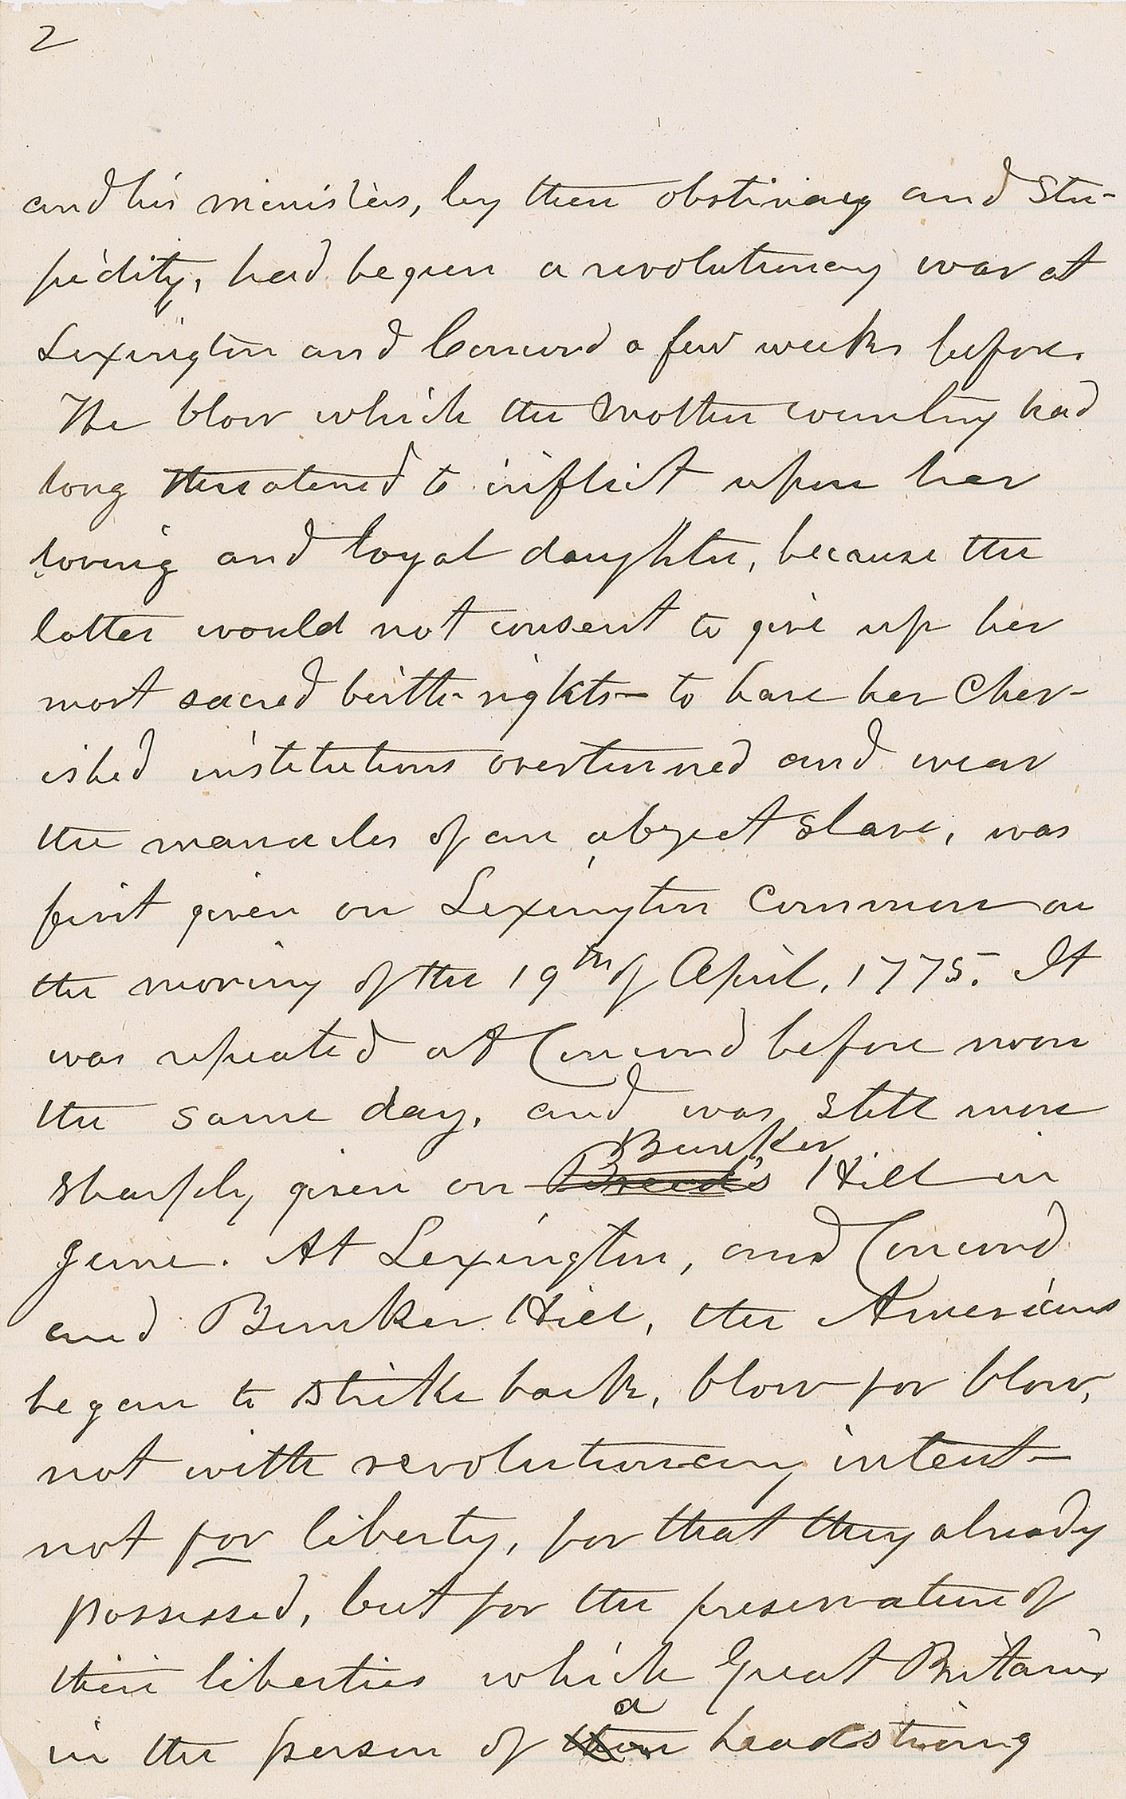 2
and his ministers, by their obstinacy and stu-
pidity, had begun a revolutionary war at
Lexington and Concord a few weeks before.
The blow which the Mother country had
long threatened to inflict upon her
loving and loyal daughter, because the
latter would not consent to give up her
most sacred birth-rights— to have her cher-
ished institutions overturned and wear
the manacles of an abject slave, was
first given on Lexington Common on
the morning of the 19th of April, 1775. It
was repeated at Concord before noon
the same day, and was still more
Bunker
sharply given on Breed's Hill in
June. At Lexington, and Concord
and Bunker Hill, the Americans
began to strike back, blow for blow,
not with revolutionary intent—
not for liberty, for that they already
possessed, but for the preservation of
their liberties which Great Britain,
a
in the person of headstrong